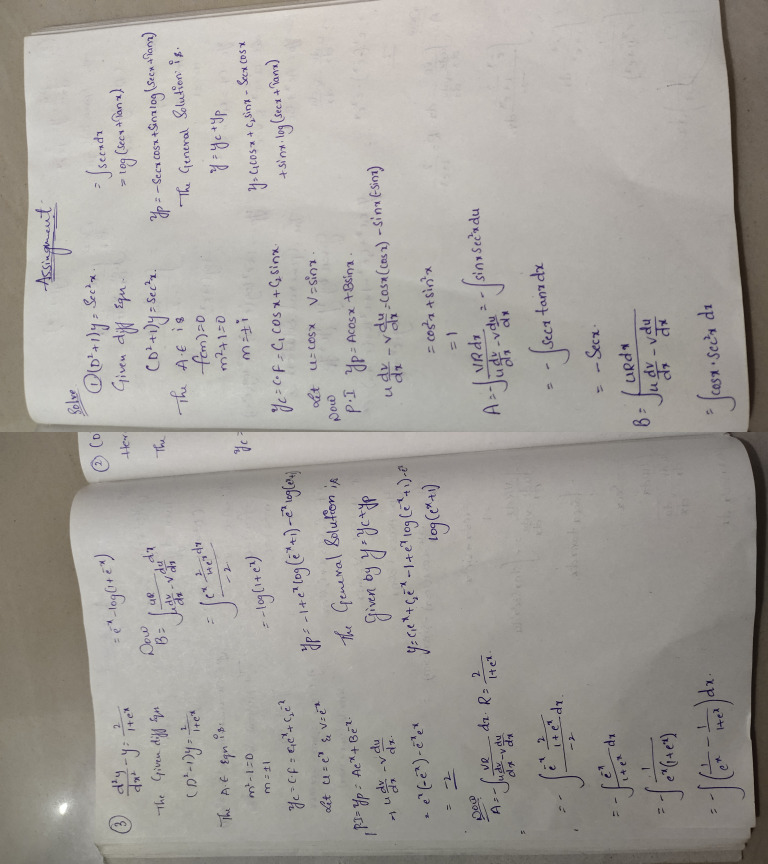 Assingment
Solve
① (D²+1)y = Sec²x.
Given diff Eqn.
(D²+1)y = sec²x.
The A.E is
f(m)=0
m²+1=0
m=±i
yc = C.F = C₁cosx + C₂sinx.
Let u=cosx v=sinx.
Now
P.I yp = Acosx + Bsinx.
u dv/dx - v du/dx = cosx(cosx) - sinx(-sinx)
= cos²x + sin²x
= 1
A = -∫ VR dx / (u dv/dx - v du/dx) = -∫ sinx sec²x du
= -∫ secx tanx dx
= -Secx.
B = ∫ UR dx / (u dv/dx - v du/dx)
= ∫ cosx · sec²x dx
= ∫ secx dx
= log(secx + Tanx)
yp = -Secx cosx + Sinx log(Secx + Tanx)
The General Solution is.
y = yc + yp
y = C₁cosx + C₂sinx - Secx cosx
+ sinx · log(secx + Tanx)
② (D
The
yc =
③ d²y/dx² - y = 2/(1+eˣ)
The Given diff Eqn
(D²-1)y = 2/(1+eˣ)
The A.E Eqn is.
m²-1=0
m=±1
yc = CF = C₁eˣ + C₂e⁻ˣ
Let u=eˣ & v=e⁻ˣ
PI = yp = Aeˣ + Be⁻ˣ.
u dv/dx - v du/dx.
= eˣ(-e⁻ˣ) - e⁻ˣeˣ
= -2
Now
A = -∫ VR / (u dv/dx - v du/dx) dx. R = 2/(1+eˣ)
= -∫ e⁻ˣ 2/(1+eˣ) / -2 dx.
= -∫ e⁻ˣ/(1+eˣ) dx
= -∫ 1/(eˣ(1+eˣ))
= -∫ (1/eˣ - 1/(1+eˣ)) dx.
= e⁻ˣ - log(1+e⁻ˣ)
Now
B = ∫ UR / (u dv/dx - v du/dx) dx
= ∫ eˣ 2/(1+eˣ) dx / -2
= -log(1+eˣ)
yp = -1 + eˣ log(e⁻ˣ+1) - e⁻ˣ log(eˣ+1)
The General Solution is
Given by y = yc + yp
y = C₁eˣ + C₂e⁻ˣ - 1 + eˣ log(e⁻ˣ+1) - e⁻ˣ
log(eˣ+1)